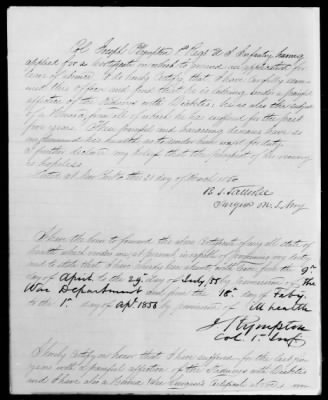 Col. Joseph Plympton 1st Regt U S Infantry having
applied for a Certificate on which to ground an application for
leave of absence I do hereby Certify, that I have carefully exam-
ined this officer and find that he is laboring under a painful
affection of the with Diabetes; he is also the subject
of a Hernia, from all of which he has suffered for the past
four years. These painful and harassing diseases have so
his health as to render him unfit for duty.
I further declare my belief that the prospect of his recovery
is hopeless
Dated at New York the 21 day of March 1860
R. S. Satterlee
Surgeon U. S. Army
I have the honor to forward the above Certificate of my ill state of
health which renders me at present incapable of performing any duty and
to state that I have already been absent with leave from the 9th
day of April to the 29 day of July 55 by permission of The
War Department and from the 18th day of Feby.
to the 1st day of Apl. 1856 by permission of Ill health
J Plympton
Col. 1st Inf
I hereby certify on honor that I have suffered for the last four
years with a painful affection of the with Diabetes
and I have also a Hernia